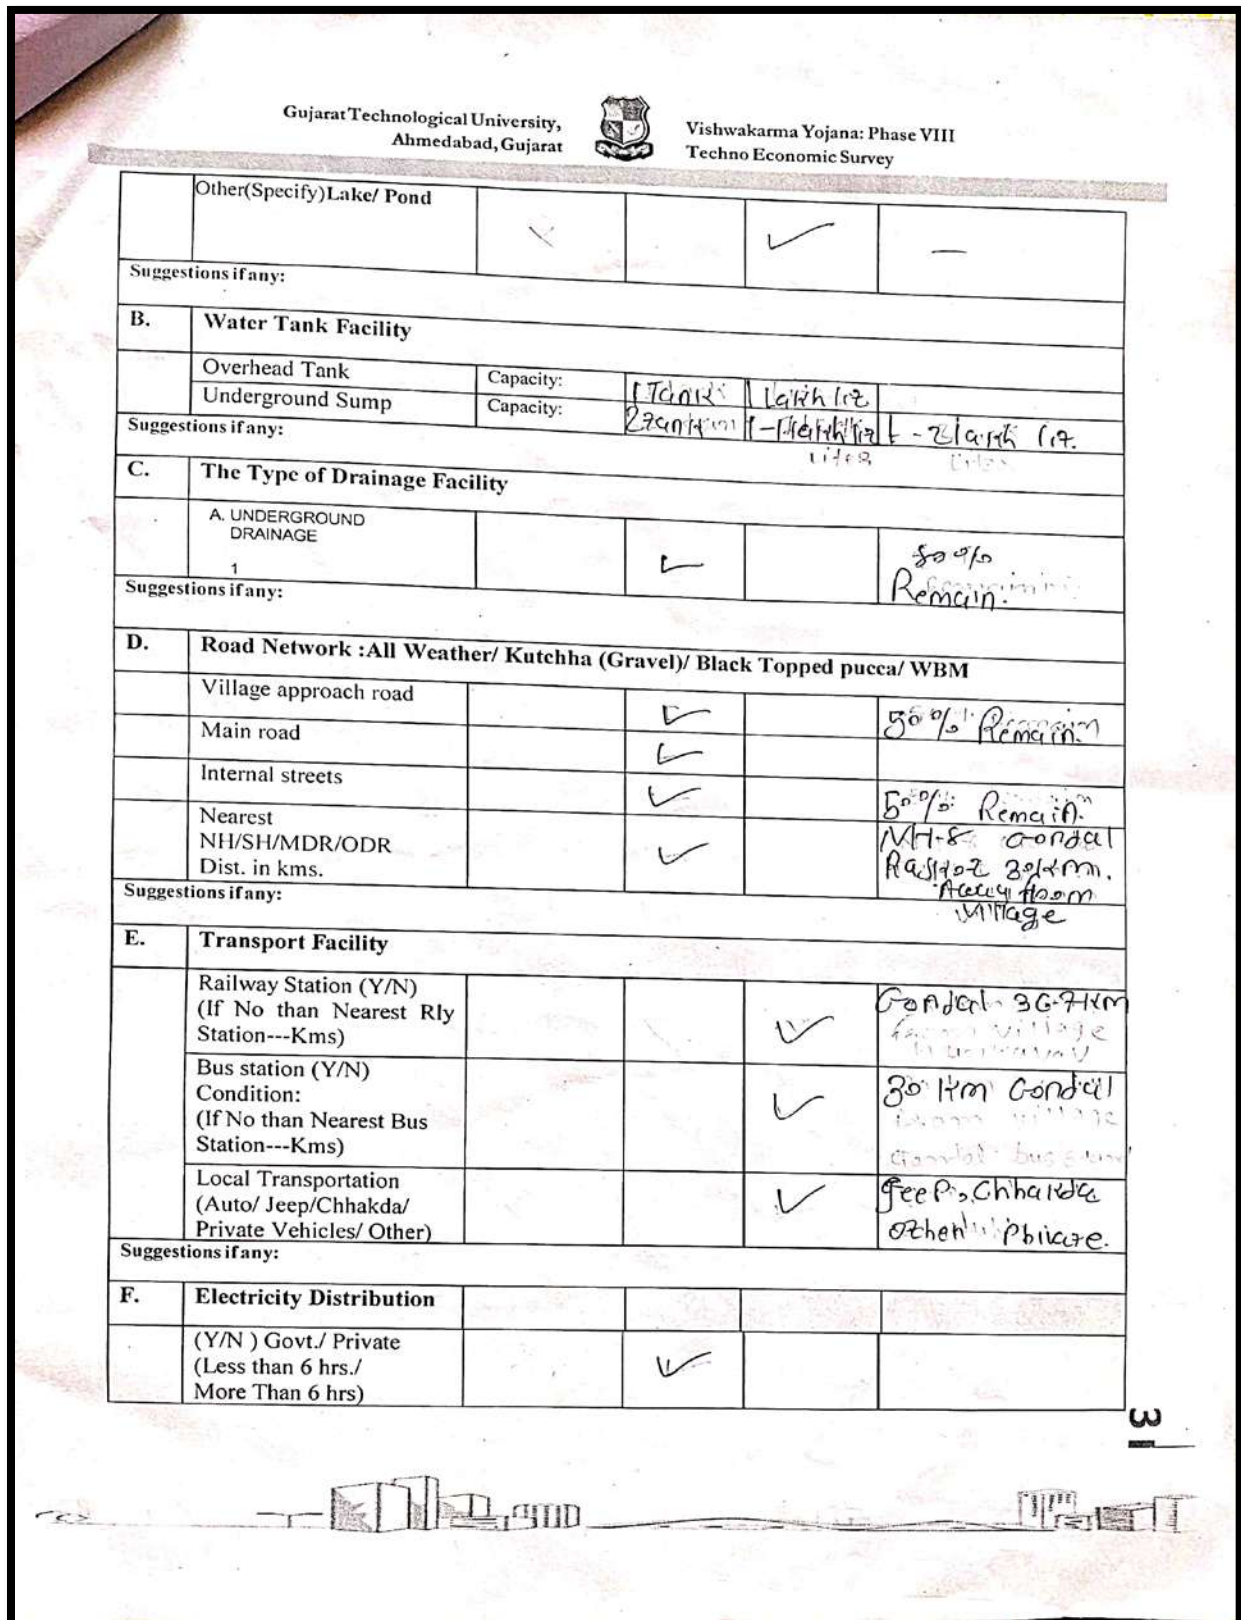 Gujarat Technological University,
Ahmedabad, Gujarat
Vishwakarma Yojana: Phase VIII
Techno Economic Survey
Other(Specify)Lake/ Pond
Suggestions if any:
B. Water Tank Facility
Overhead Tank Capacity: 1 Tank 1 Lakh
Underground Sump Capacity:
Suggestions if any:
C. The Type of Drainage Facility
A. UNDERGROUND
DRAINAGE
1
Remain.
Suggestions if any:
D. Road Network :All Weather/ Kutchha (Gravel)/ Black Topped pucca/ WBM
Village approach road 50% Remain.
Main road
Internal streets 50% Remain.
Nearest
NH/SH/MDR/ODR
Dist. in kms.
NH-8 Gondal
30 km.
Village
Suggestions if any:
E. Transport Facility
Railway Station (Y/N)
(If No than Nearest Rly
Station---Kms)
Gondal 36.7 km
village
Bus station (Y/N)
Condition:
(If No than Nearest Bus
Station---Kms)
30 km Gondal
Local Transportation
(Auto/ Jeep/Chhakda/
Private Vehicles/ Other)
Jeep, Chhakda
Suggestions if any:
F. Electricity Distribution
(Y/N ) Govt./ Private
(Less than 6 hrs./
More Than 6 hrs)
3